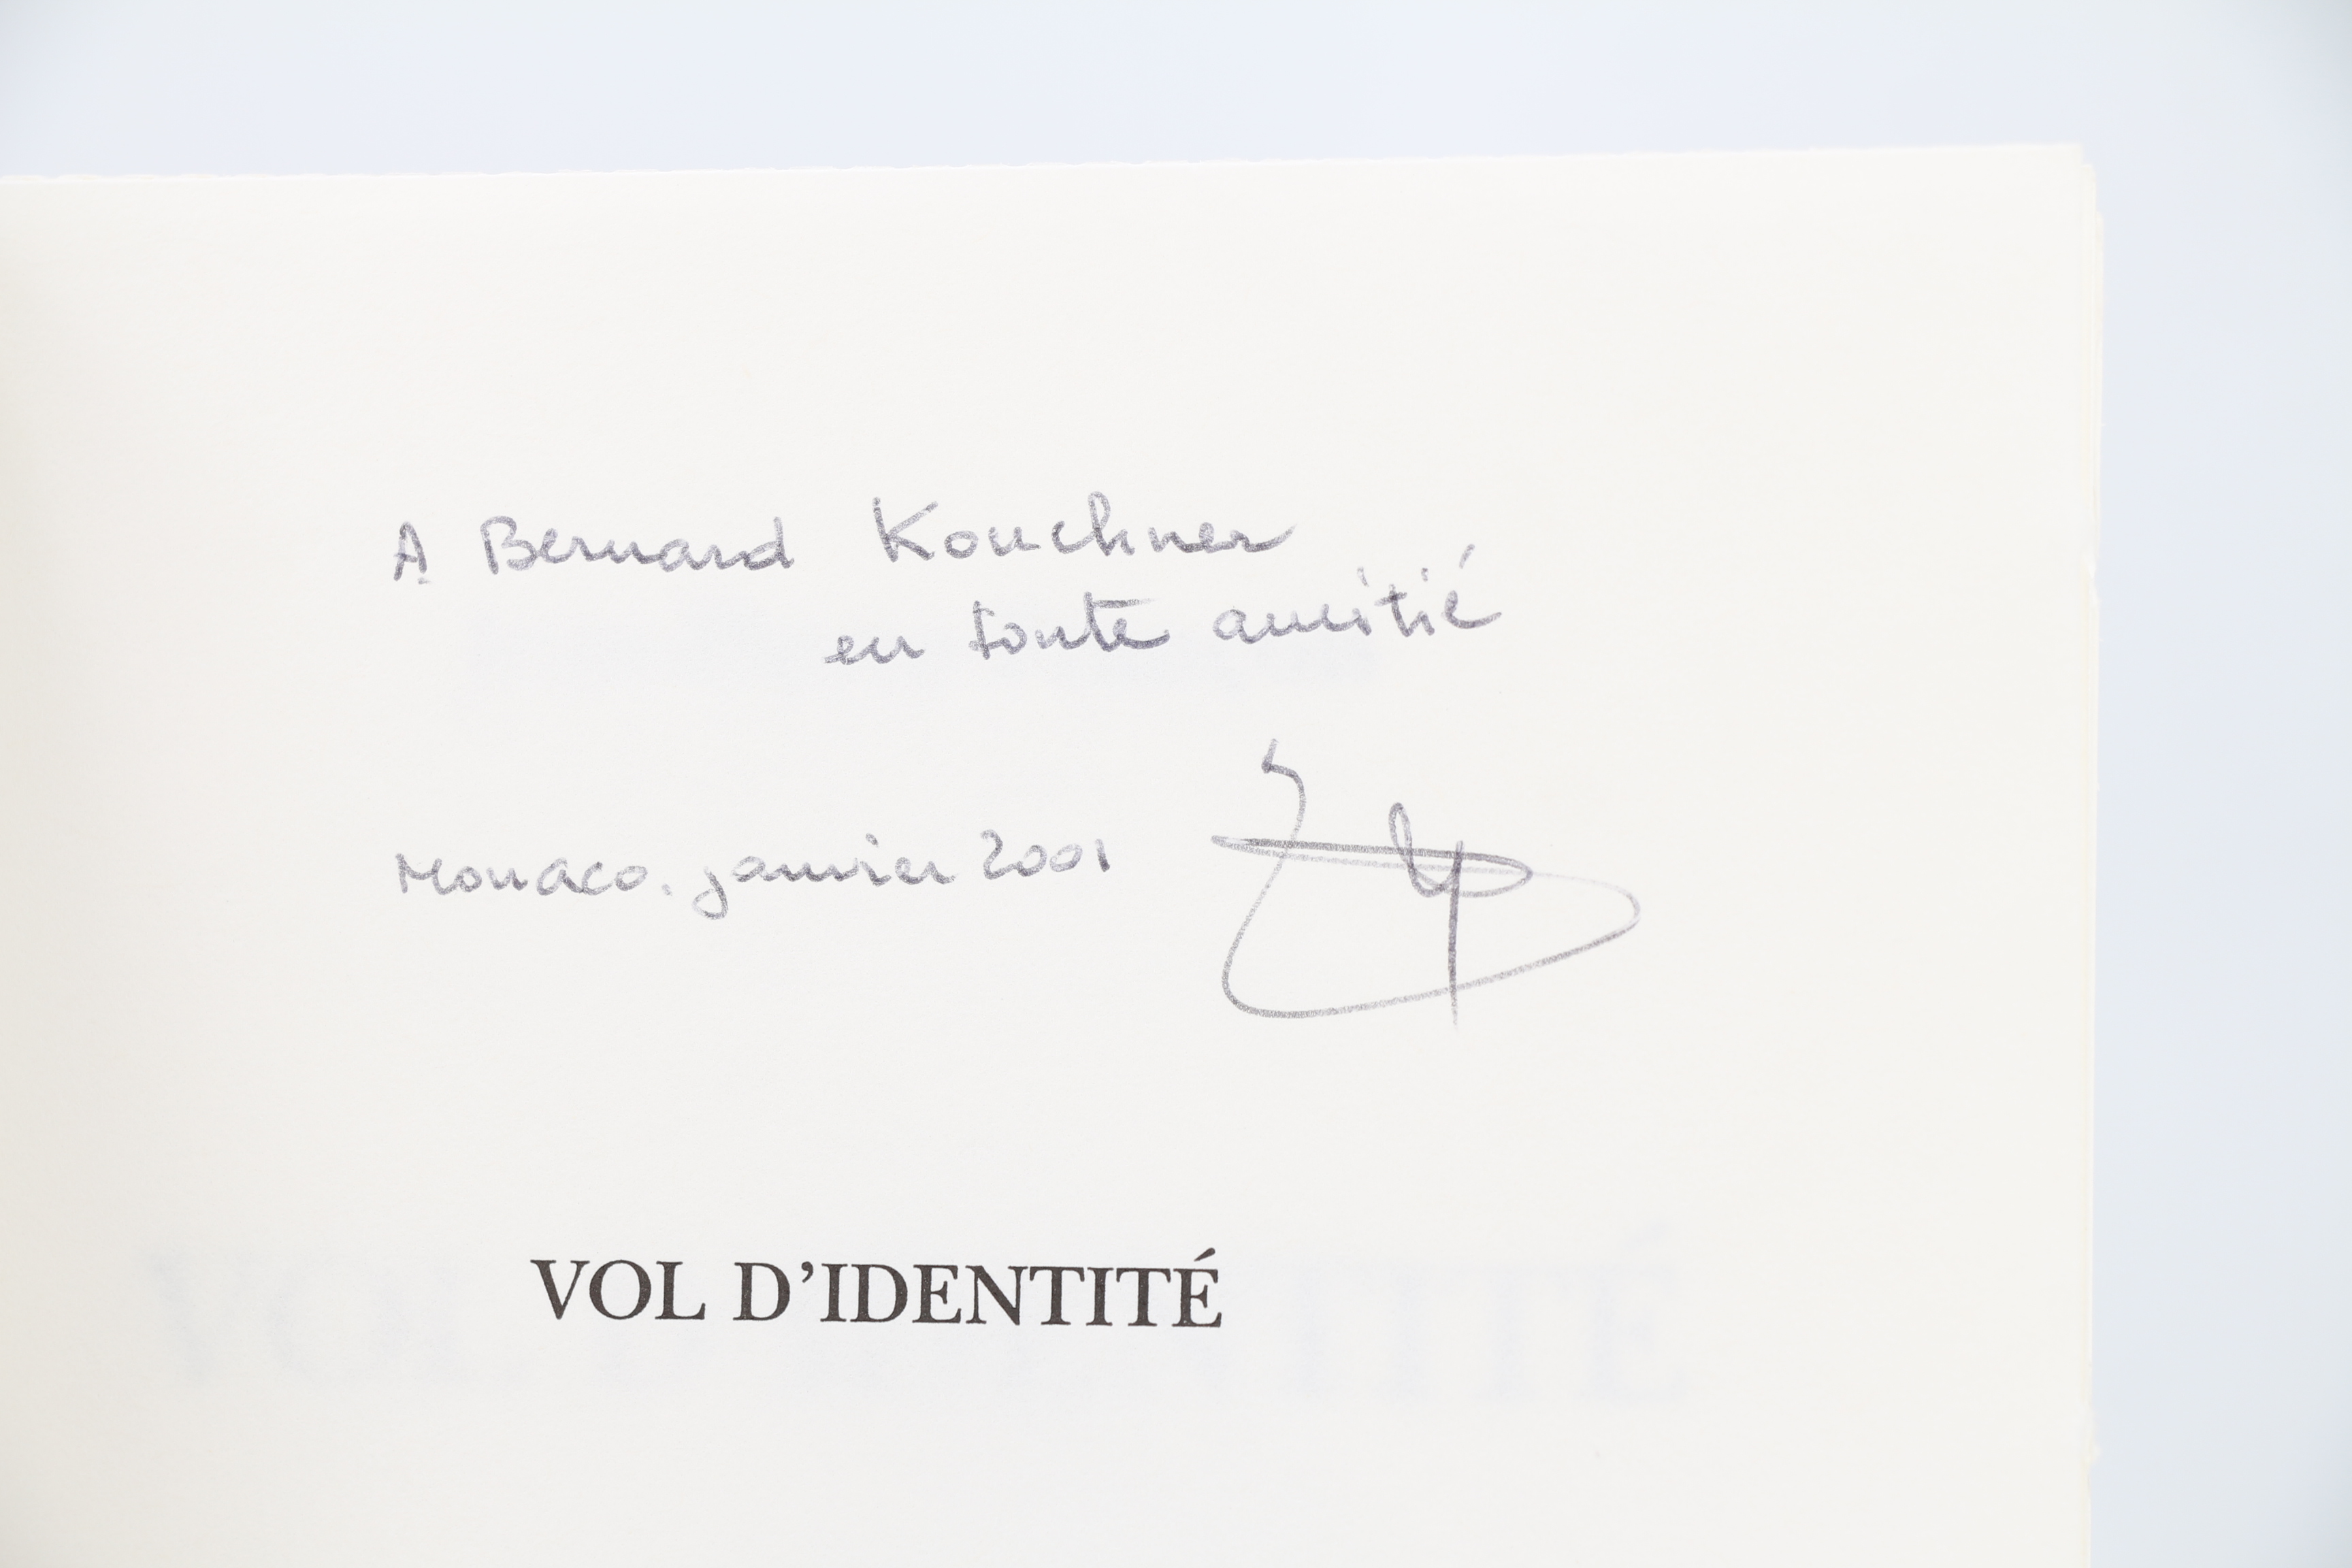 A Bernard Kouchner
en toute amitié
Monaco. janvier 2001
VOL D'IDENTITÉ